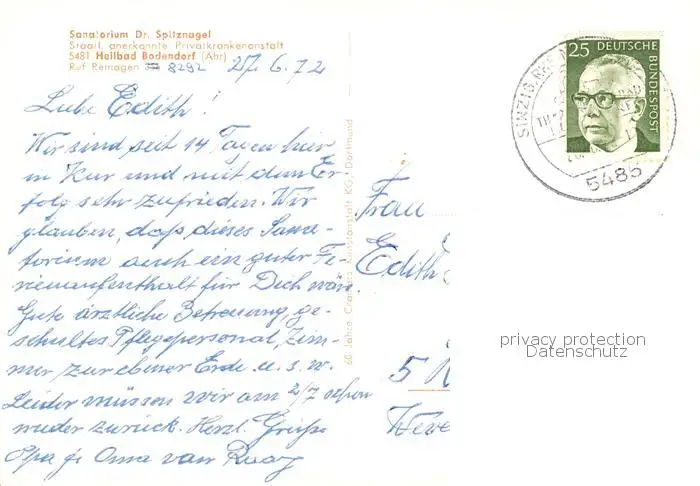 Sanatorium Dr. Spitznagel
Staatl. anerkannte Privatkrankenanstalt
5481 Heilbad Bodendorf (Ahr)
Ruf Remagen 8292
27.6.72
Liebe Edith!
Wir sind seit 14 Tagen hier
in Kur und mit dem Er-
folg sehr zufrieden. Wir
glauben, daß dieses Sana-
torium auch ein guter Fe-
rienaufenthalt für Dich wär.
Gute ärztliche Betreuung, ge-
schultes Pflegepersonal, Zim-
mer zur ebener Erde u.s.w.
Leider müssen wir am 2/7 schon
wieder zurück. Herzl. Grüße
Opa & Oma van
60 Jahre Kunstanstalt KG, Dortmund
Frau
Edith
5
25 DEUTSCHE
BUNDESPOST
SINZIG
5485
privacy protection
Datenschutz